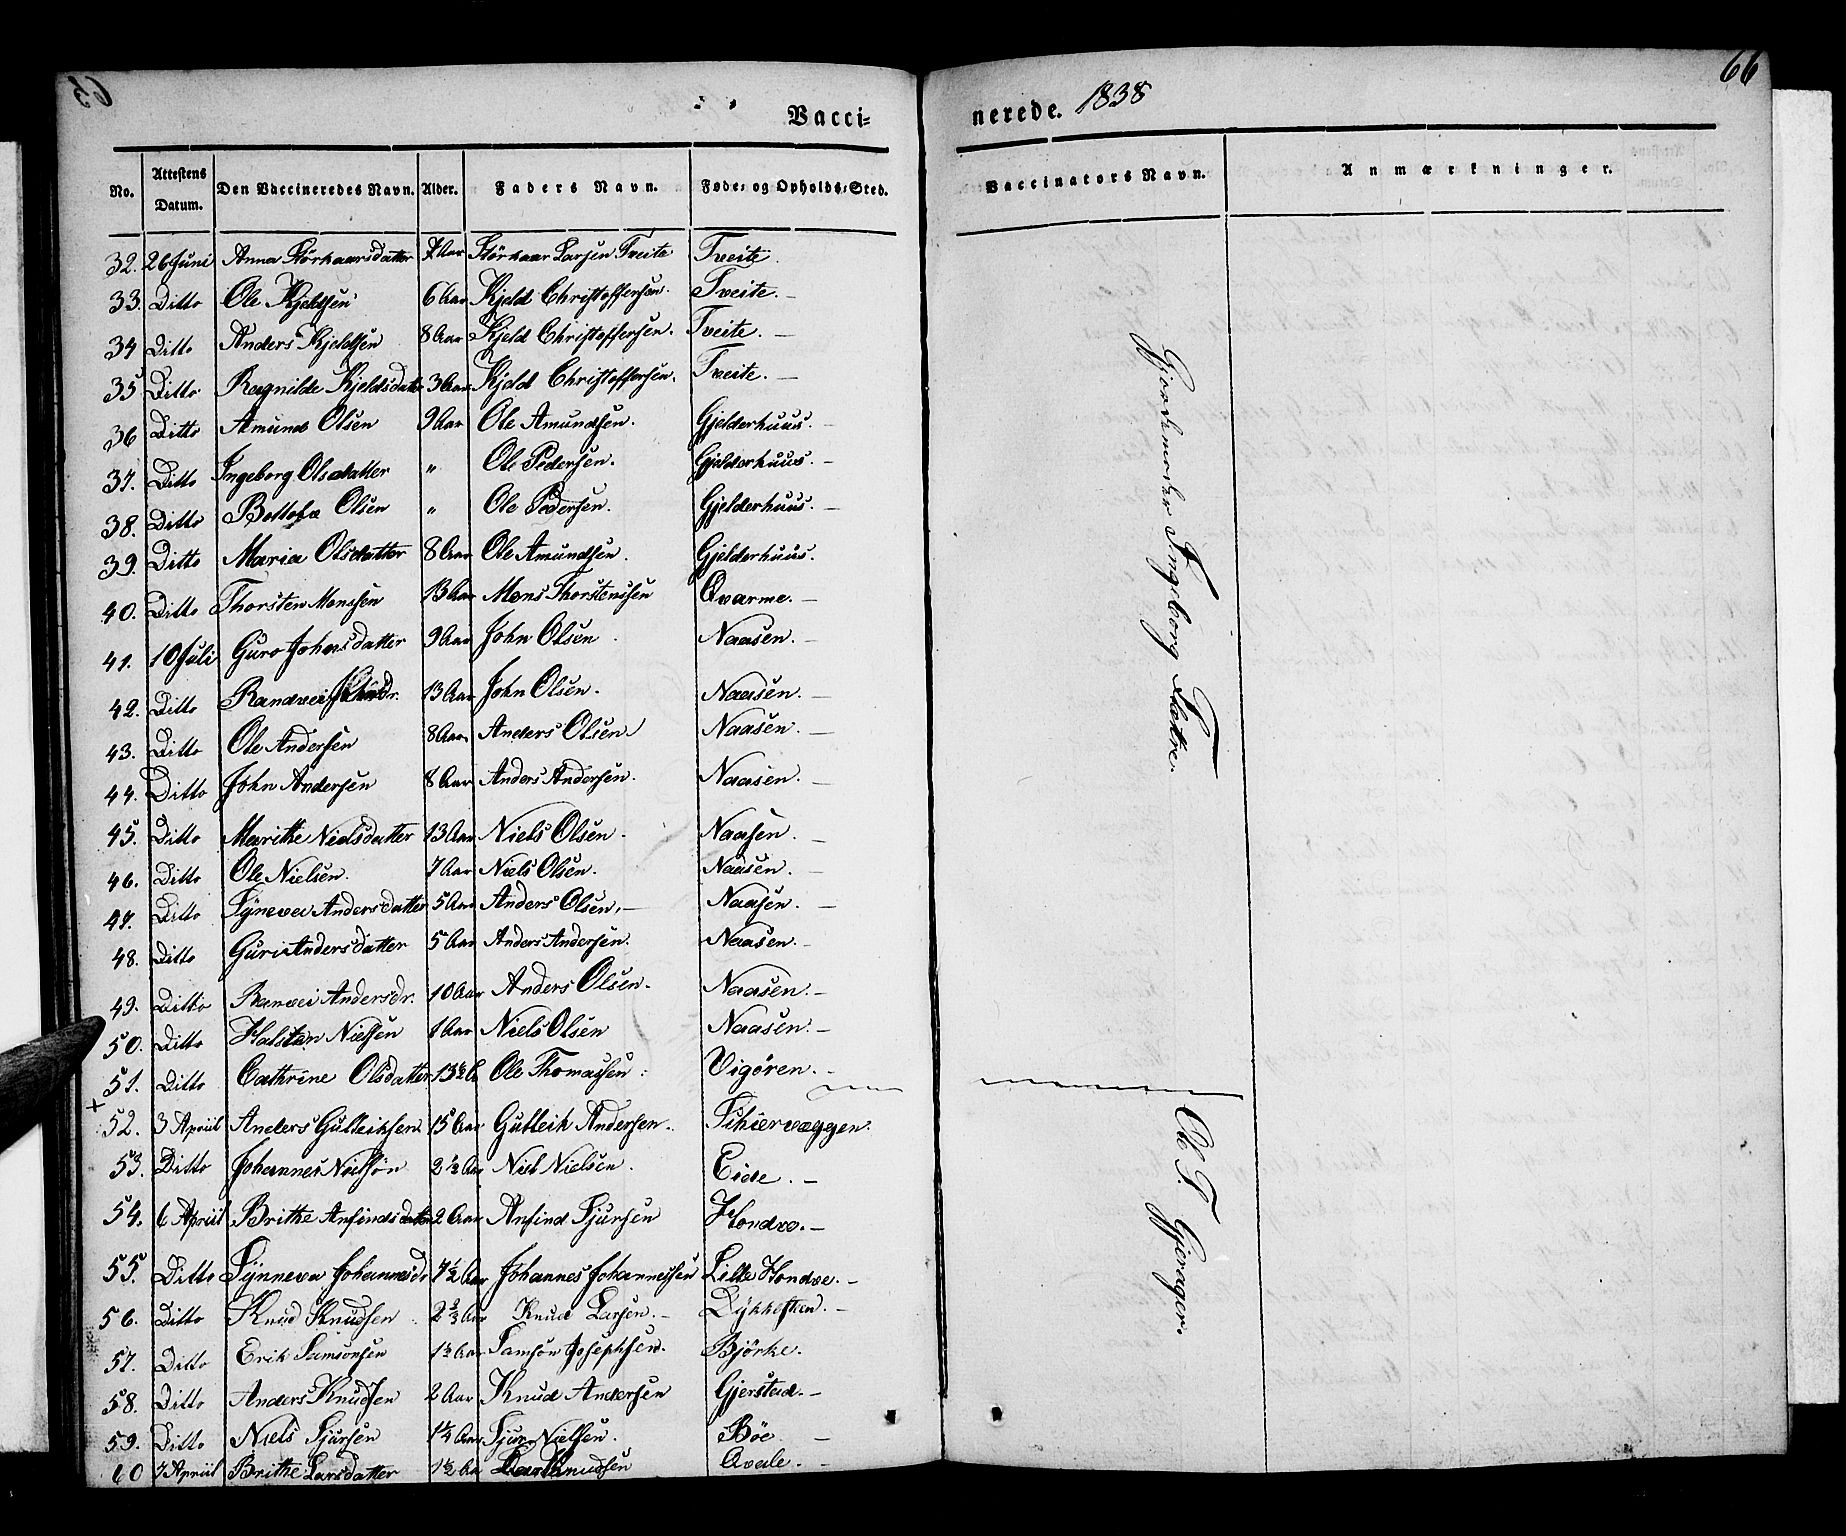 65
66
Vacci=
nerede. 1838
No. Attestens Datum. Den Vaccineredes Navn. Alder. Faders Navn. Føde- og Opholds-Sted. Vaccinators Navn. Anmærkninger.
32. 26 Juni Anna Störkaarsdatter 7 Aar Störkaar Larsen Tveite Tveite.
33. Ditto Ole Kjeldsen 6 Aar Kjeld Christoffersen. Tveite. —
34 Ditto Anders Kjeldsen 8 Aar Kjeld Christoffersen. Tveite. —
35 Ditto Ragnilde Kjeldsdatter 3 Aar Kjeld Christoffersen. Tveite. —
36 Ditto Amund Olsen 9 Aar Ole Amundsen. Gjelderhuus. —
37. Ditto Ingeborg Olsdatter " Ole Pedersen. Gjelderhuus. —
38. Ditto Bottolva Olsen " Ole Pedersen. Gjelderhuus. —
39. Ditto Maria Olsdatter 8 Aar Ole Amundsen. Gjelderhuus.
40. Ditto Thorsten Monssen 13 Aar Mons Thorstenssen Qvarme. —
41. 10 Juli Guro Johnsdatter 9 Aar John Olsen. Naasen. —
42. Ditto Randvei Johnsdr. 13 Aar John Olsen. Naasen. —
43. Ditto Ole Andersen 8 Aar Anders Olsen Naasen. —
44. Ditto John Andersen 8 Aar Anders Andersen. Naasen. —
45. Ditto Marithe Nielsdatter 13 Aar Niels Olsen. Naasen. —
46. Ditto Ole Nielsen. 7 Aar Niels Olsen. Naasen. —
47. Ditto Synevei Andersdatter 5 Aar Anders Olsen. — Naasen. —
48. Ditto Guri Andersdatter 5 Aar Anders Andersen. Naasen. —
49. Ditto Ranvei Andersdr. 10 Aar Anders Olsen. Naasen. —
50. Ditto Halstan Nielsen 1 Aar Niels Olsen Naasen. —
51. Ditto Cathrine Olsdatter 13½ A Ole Thomassen. Vigören. —
Gjordemoder Ingeborg Tvetre.
+
52. 3 Apriil Anders Gulleiksen 15 Aar Gulleik Andersen. Skiervæggen.
53. Ditto Johannes Nielsön 2½ Aar Niels Nielsen. Eide. —
54. 6 Apriil Brithe Anfindsdatter 2 Aar Anfind Sjursen Hondve. —
55. Ditto Synneva Johannesdr 7½ Aar Johannes Johannessen Lille Hondve. —
56. Ditto Knud Knudsen 2⅔ Aar Knud Larsen. — Dykkesteen. —
57. Ditto Erik Samsonsen 1½ Aar Samson Josephsen. Björke.
58. Ditto Anders Knudsen 2 Aar Knud Andersen Gjerstad. —
59. Ditto Niels Sjursen 1¼ Aar Sjur Nielsen. Böe —
60 7 Apriil Brithe Larsdatter 1½ Aar Lars Knudsen Qvale. —
Ole T. Gjerager.